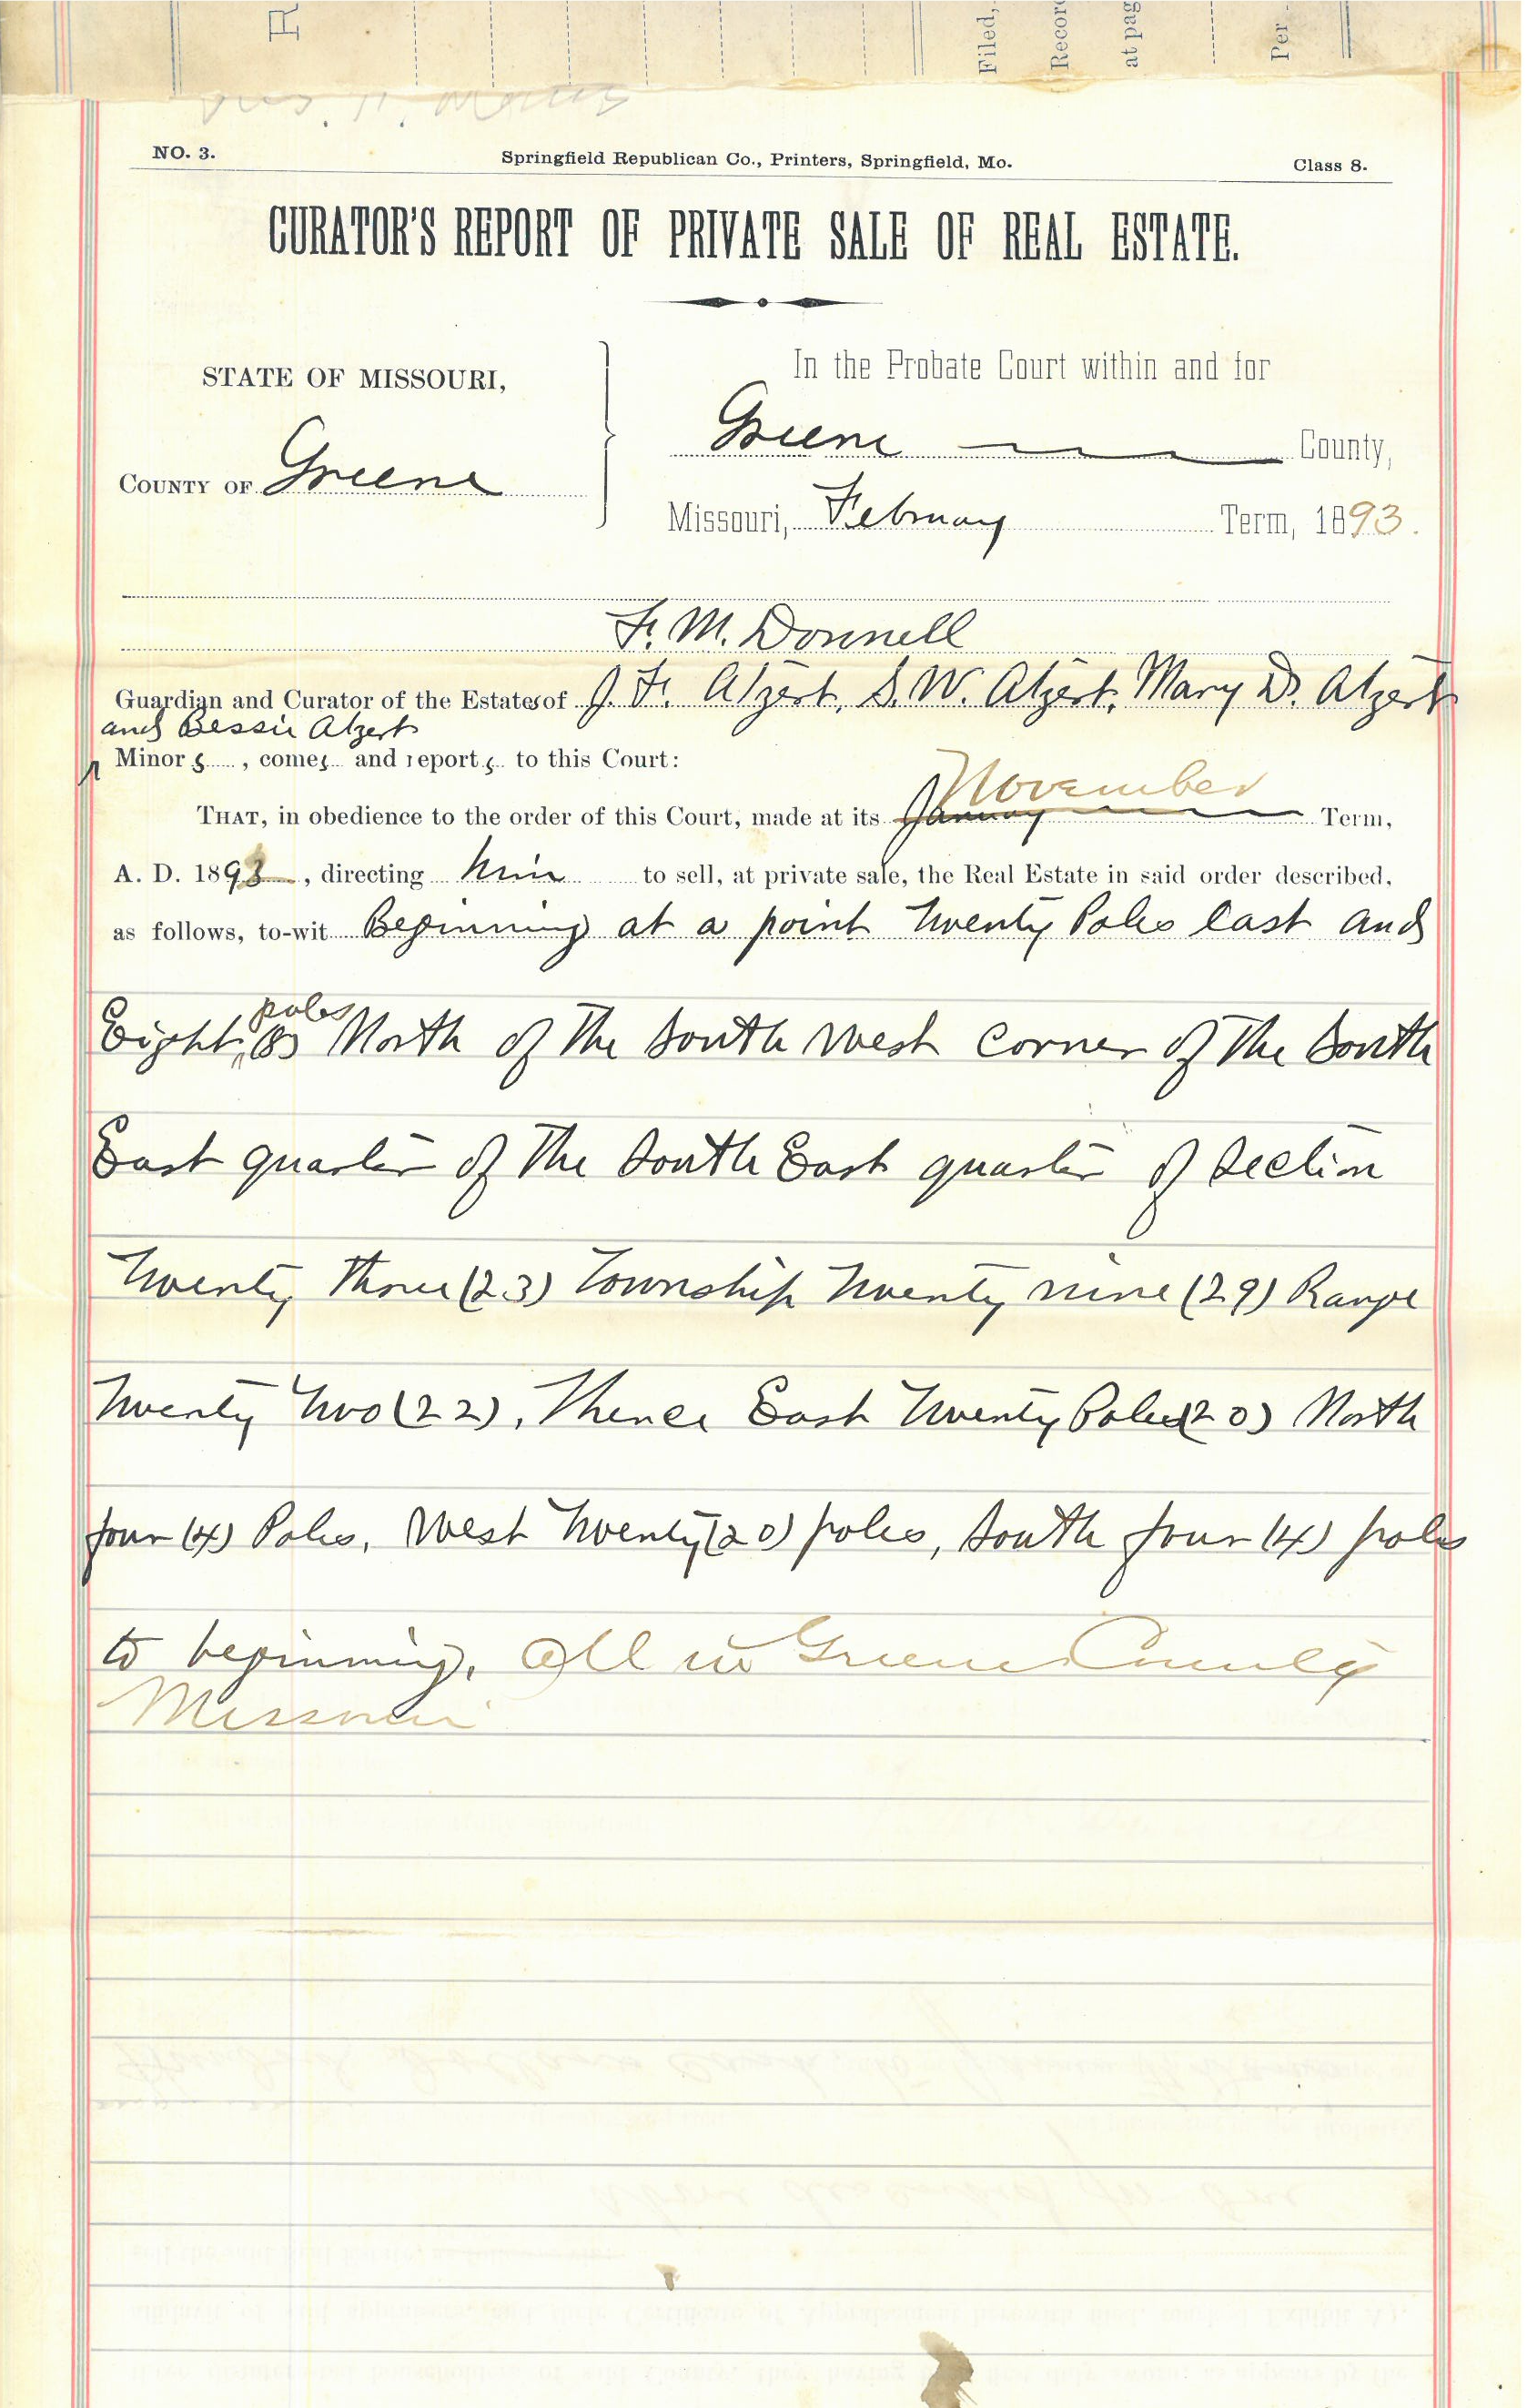 Filed,
Recor
at pag
Per
NO. 3.
Springfield Republican Co., Printers, Springfield, Mo.
Class 8.
CURATOR'S REPORT OF PRIVATE SALE OF REAL ESTATE.
STATE OF MISSOURI,
COUNTY OF Greene
In the Probate Court within and for
Greene County,
Missouri, February Term, 1893.
F. M. Donnell
Guardian and Curator of the Estates of J. F. Atzert, S. W. Atzert, Mary D. Atzert
and Bessie Atzert
Minors, comes and reports to this Court:
November
THAT, in obedience to the order of this Court, made at its January Term,
A. D. 1893, directing him to sell, at private sale, the Real Estate in said order described,
as follows, to-wit Beginning at a point Twenty Poles East and
poles
Eight (8) North of the South West corner of the South
East quarter of the South East quarter of Section
Twenty Three (23) Township Twenty nine (29) Range
Twenty Two (22), Thence East Twenty Poles (20) North
four (4) Poles, West Twenty (20) poles, South four (4) poles
to beginning, All in Greene County
Missouri